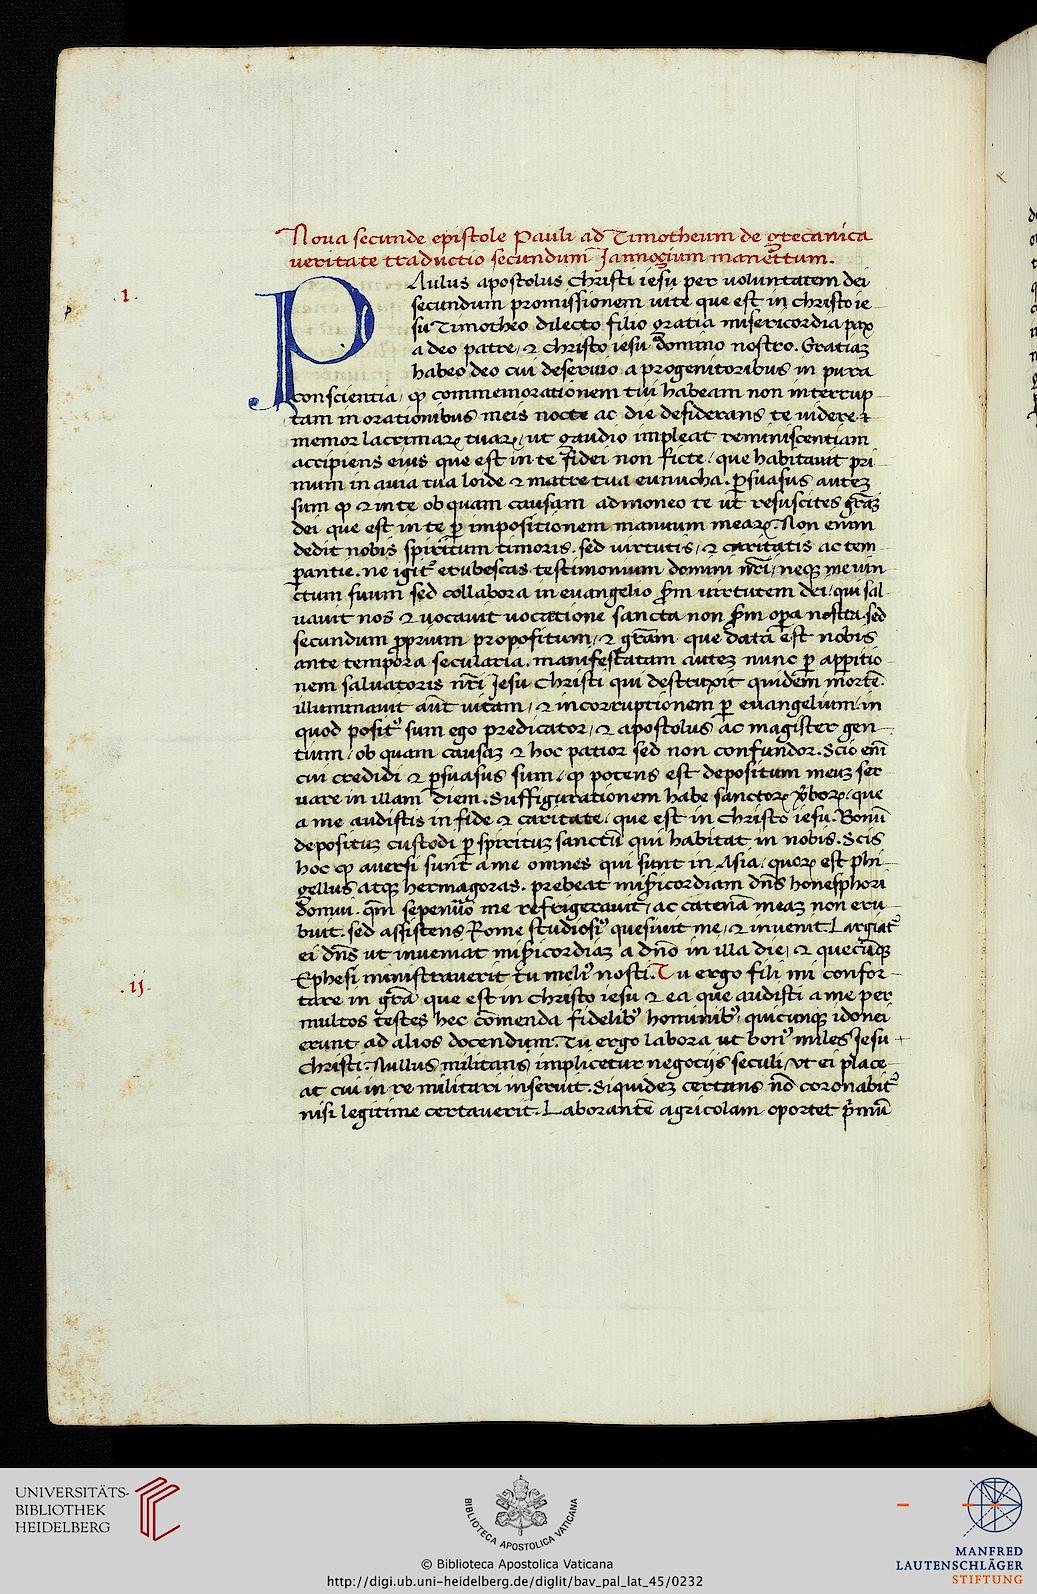 Noua secunde epistole Pauli ad Timotheum de grecanica
veritate traductio secundum Jannoçium manettum.
.1.
p
PAulus apostolus christi iesu per voluntatem dei
secundum promissionem uite que est in christo ie
su Timotheo dilecto filio gratia misericordia pax
a deo patre, ⁊ christo iesu domino nostro. Gratiaʒ
habeo deo cui deseruio a progenitoribus in pura
conscientia, ꝙ commemorationem tui habeam non interrup
tam in orationibus meis nocte ac die desiderans te uidere ⁊
memor lacrimaꝝ tuaꝝ, ut gaudio impleat reminiscentiam
accipiens eius que est in te fidei non ficte, que habitauit pri
mum in auia tua loide ⁊ matre tua eunucha. ꝑsuasus auteʒ
sum ꝙ ⁊ in te ob quam causam admoneo te ut resuscites grãʒ
dei que est in te ꝑ impositionem manuum meaꝝ. Non enim
dedit nobis spiritum timoris, sed virtutis, ⁊ caritatis ac tem
ꝑantie. ne igitᷣ erubescas testimonium domini nr̃i, neqʒ me vin
ctum suum sed collabora in euangelio ẜm uirtutem dei, qui sal
uauit nos ⁊ uocauit uocatione sancta non ẜm oꝑa nostra. sed
secundum ꝓprium propositum, ⁊ grãm que data est nobis
ante tempora secularia. manifestatam auteʒ nunc ꝑ apparitio
nem saluatoris nr̃i Jesu Christi qui destruxit quidem mortẽ.
illuminauit aũt uitam, ⁊ incorruptionem ꝑ euangelium, in
quod positꝰ sum ego predicator, ⁊ apostolus ac magister gen
tium, ob quam causaʒ ⁊ hoc patior sed non confundor. Scio eñi
cui credidi ⁊ ꝑsuasus sum, ꝙ potens est depositum meuʒ ser
uare in illam diem. Suffigurationem habe sanctoꝝ ꝟboꝝ, que
a me audistis in fide ⁊ caritate, que est in christo iesu. Bonũ
deposituʒ custodi ꝑ spirituʒ sanctũ qui habitat in nobis. Scis
hoc ꝙ auersi sunt a me omnes qui sunt in Asia, quoꝝ est phi
gellus atqʒ hermagoras. prebeat mis̃icordiam dñs honesphori
domui. qm̃ sepenũo me refrigerauit, ac catenã meaʒ non eru
buit. sed assistens Rome studiosiꝰ quesiuit me, ⁊ inuenit. Largiatᷣ
ei dñs ut inueniat mis̃icordiaʒ a dño in illa die, ⁊ quecũqʒ
Ephesi ministrauerit tu meliꝰ nosti. Tu ergo fili mi confor
.ij.
tare in grã que est in christo iesu ⁊ ea que audisti a me per
multos testes hec cõmenda fidelibꝰ hominibꝰ, quicunqʒ idonei
erunt ad alios docendum. Tu ergo labora ut bonꝰ miles Jesu +
christi. Nullus militans implicetur negocijs seculi, vt ei place
at cui in re militari inseruit. Siquideʒ certans nõ coronabitᷣ
nisi legitime certauerit. Laborantẽ agricolam oportet p̃mũ
UNIVERSITÄTS-
BIBLIOTHEK
HEIDELBERG
BIBLIOTECA APOSTOLICA VATICANA
© Biblioteca Apostolica Vaticana
http://digi.ub.uni-heidelberg.de/diglit/bav_pal_lat_45/0232
MANFRED
LAUTENSCHLÄGER
STIFTUNG